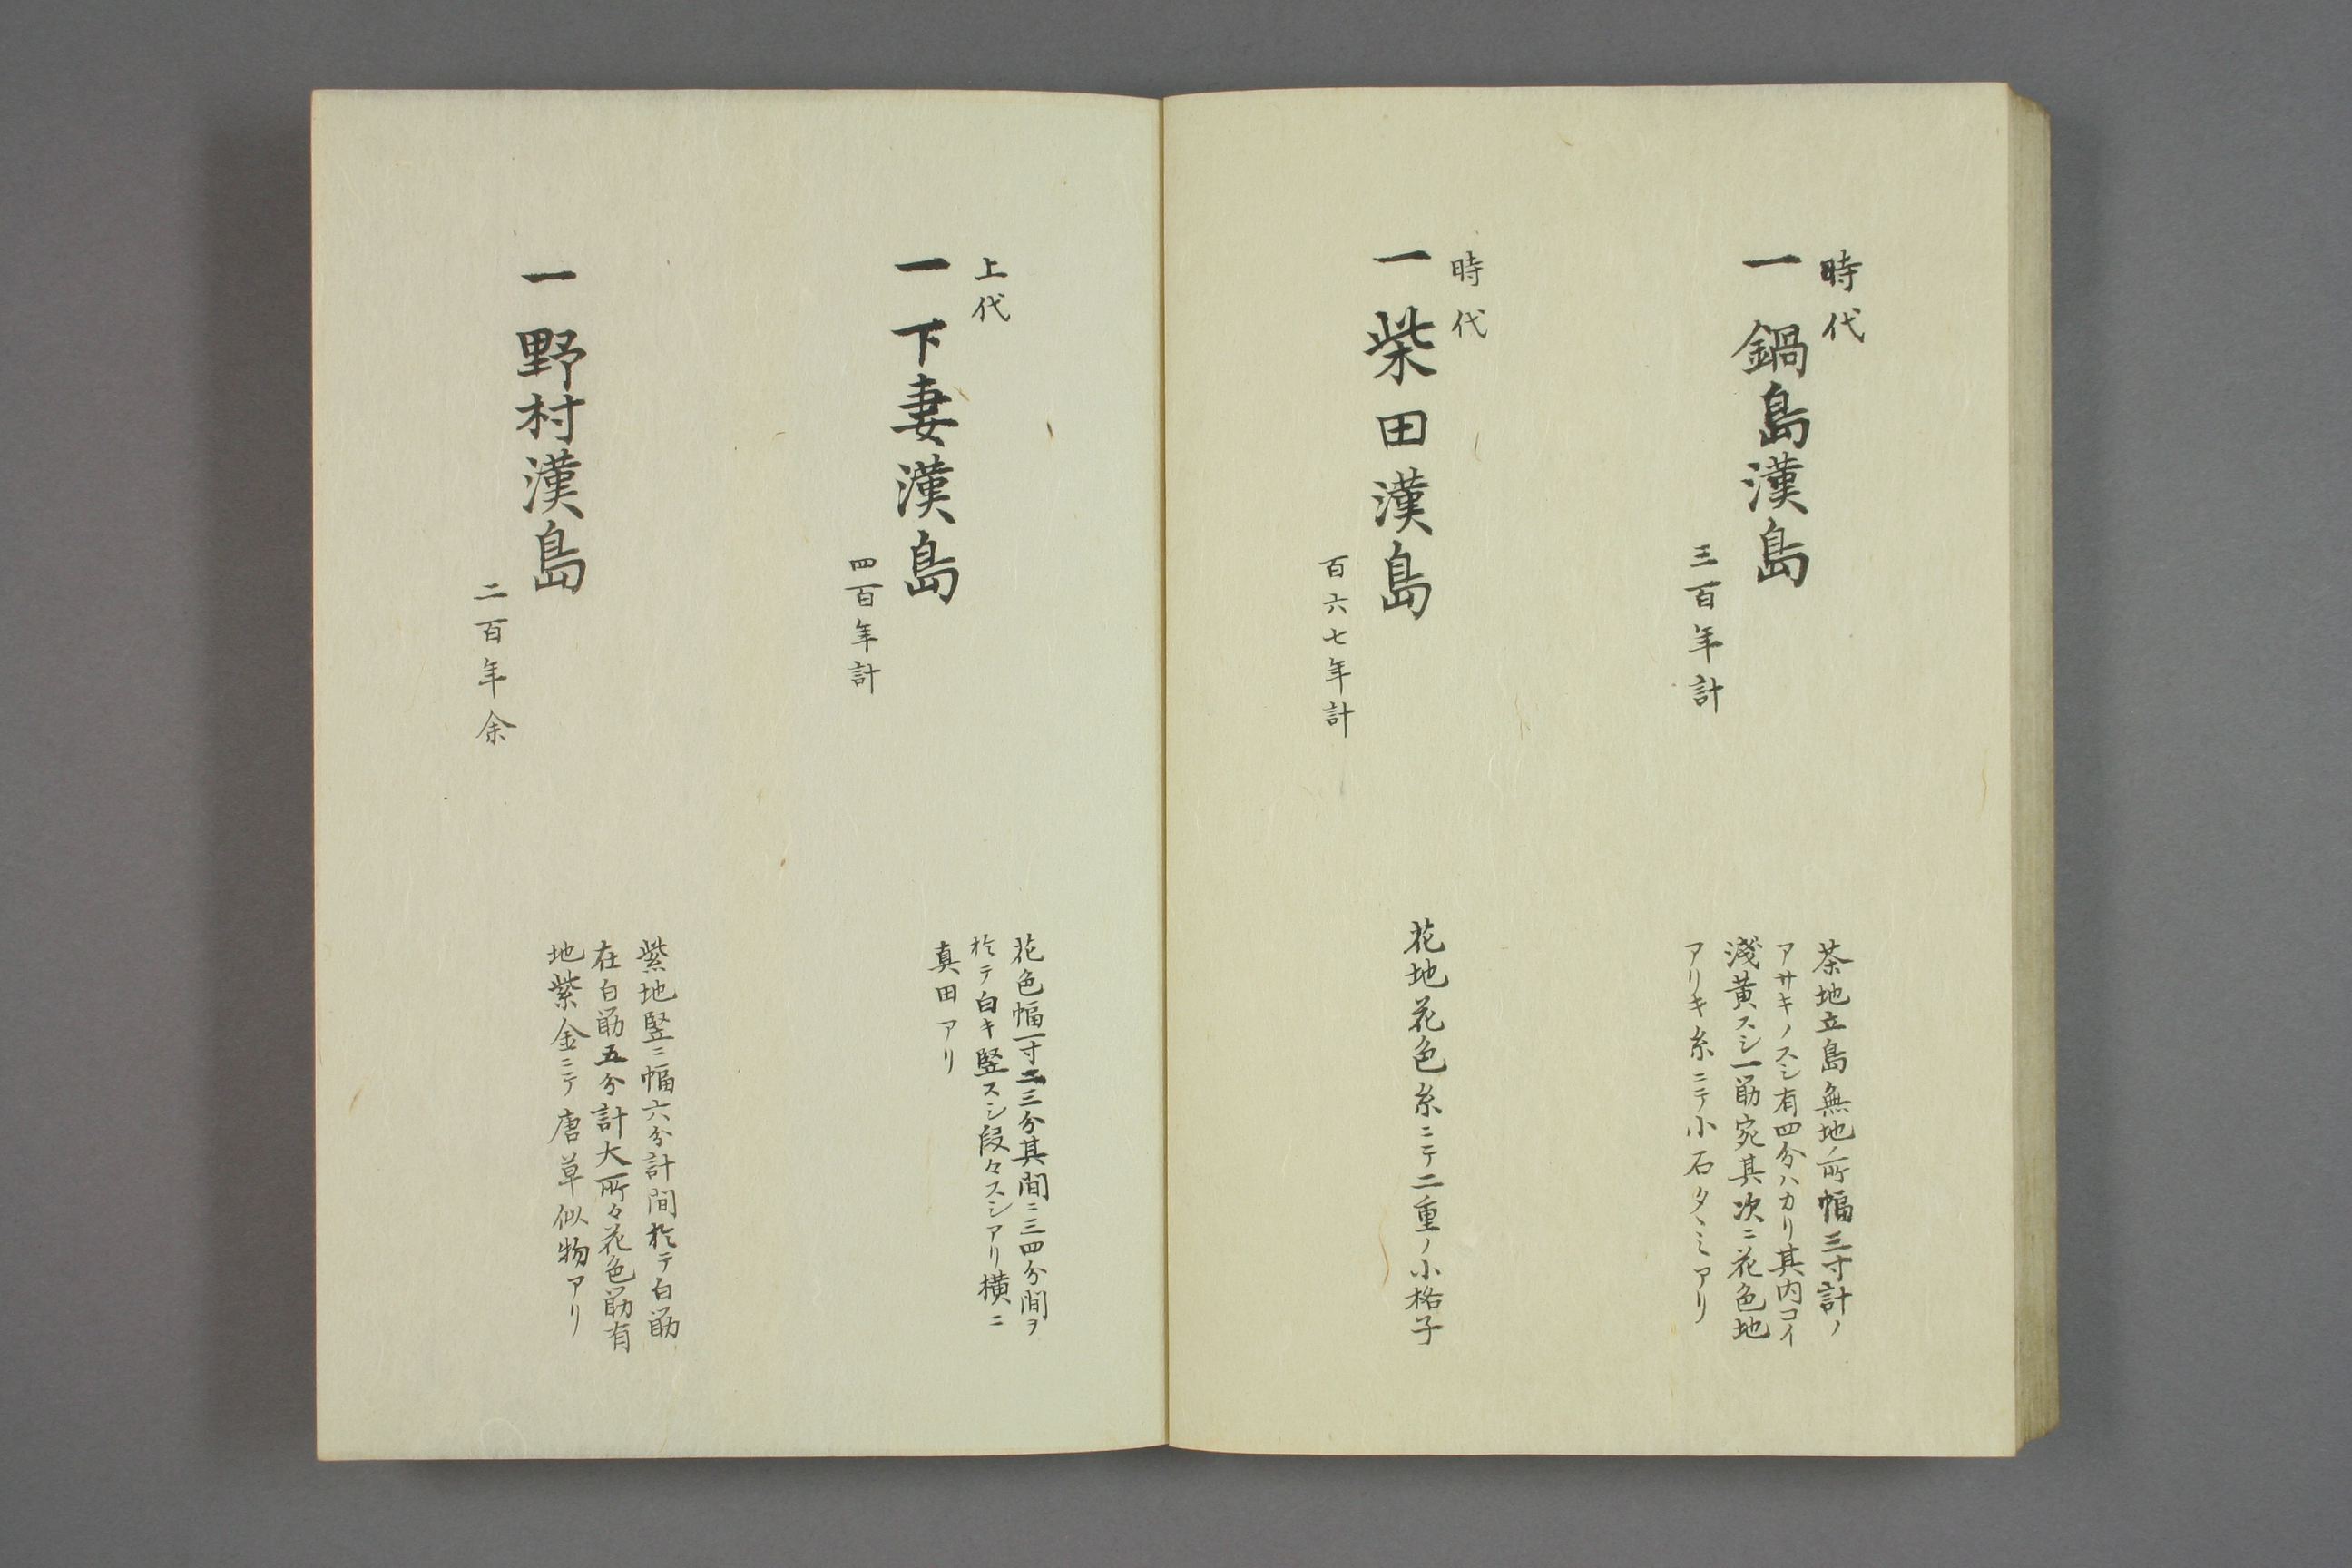 時代
一 鍋島漢島
三百年計
茶地立島無地ノ所幅三寸計ノ
アサキノスシ有四分ハカリ其内コイ
淺黄スシ一筋宛其次ニ花色地
アリキ糸ニテ小石タヽミアリ
時代
一 柴田漢島
百六七年計
花地花色糸ニテ二重ノ小格子
上代
一 下妻漢島
四百年計
花色幅一寸二三分其間ニ三四分間ヲ
於テ白キ竪スシ段々スシアリ横ニ
真田アリ
一 野村漢島
二百年余
紫地竪ニ幅六分計間於テ白筋
在白筋五分計大所々花色筋有
地紫金ニテ唐草似物アリ